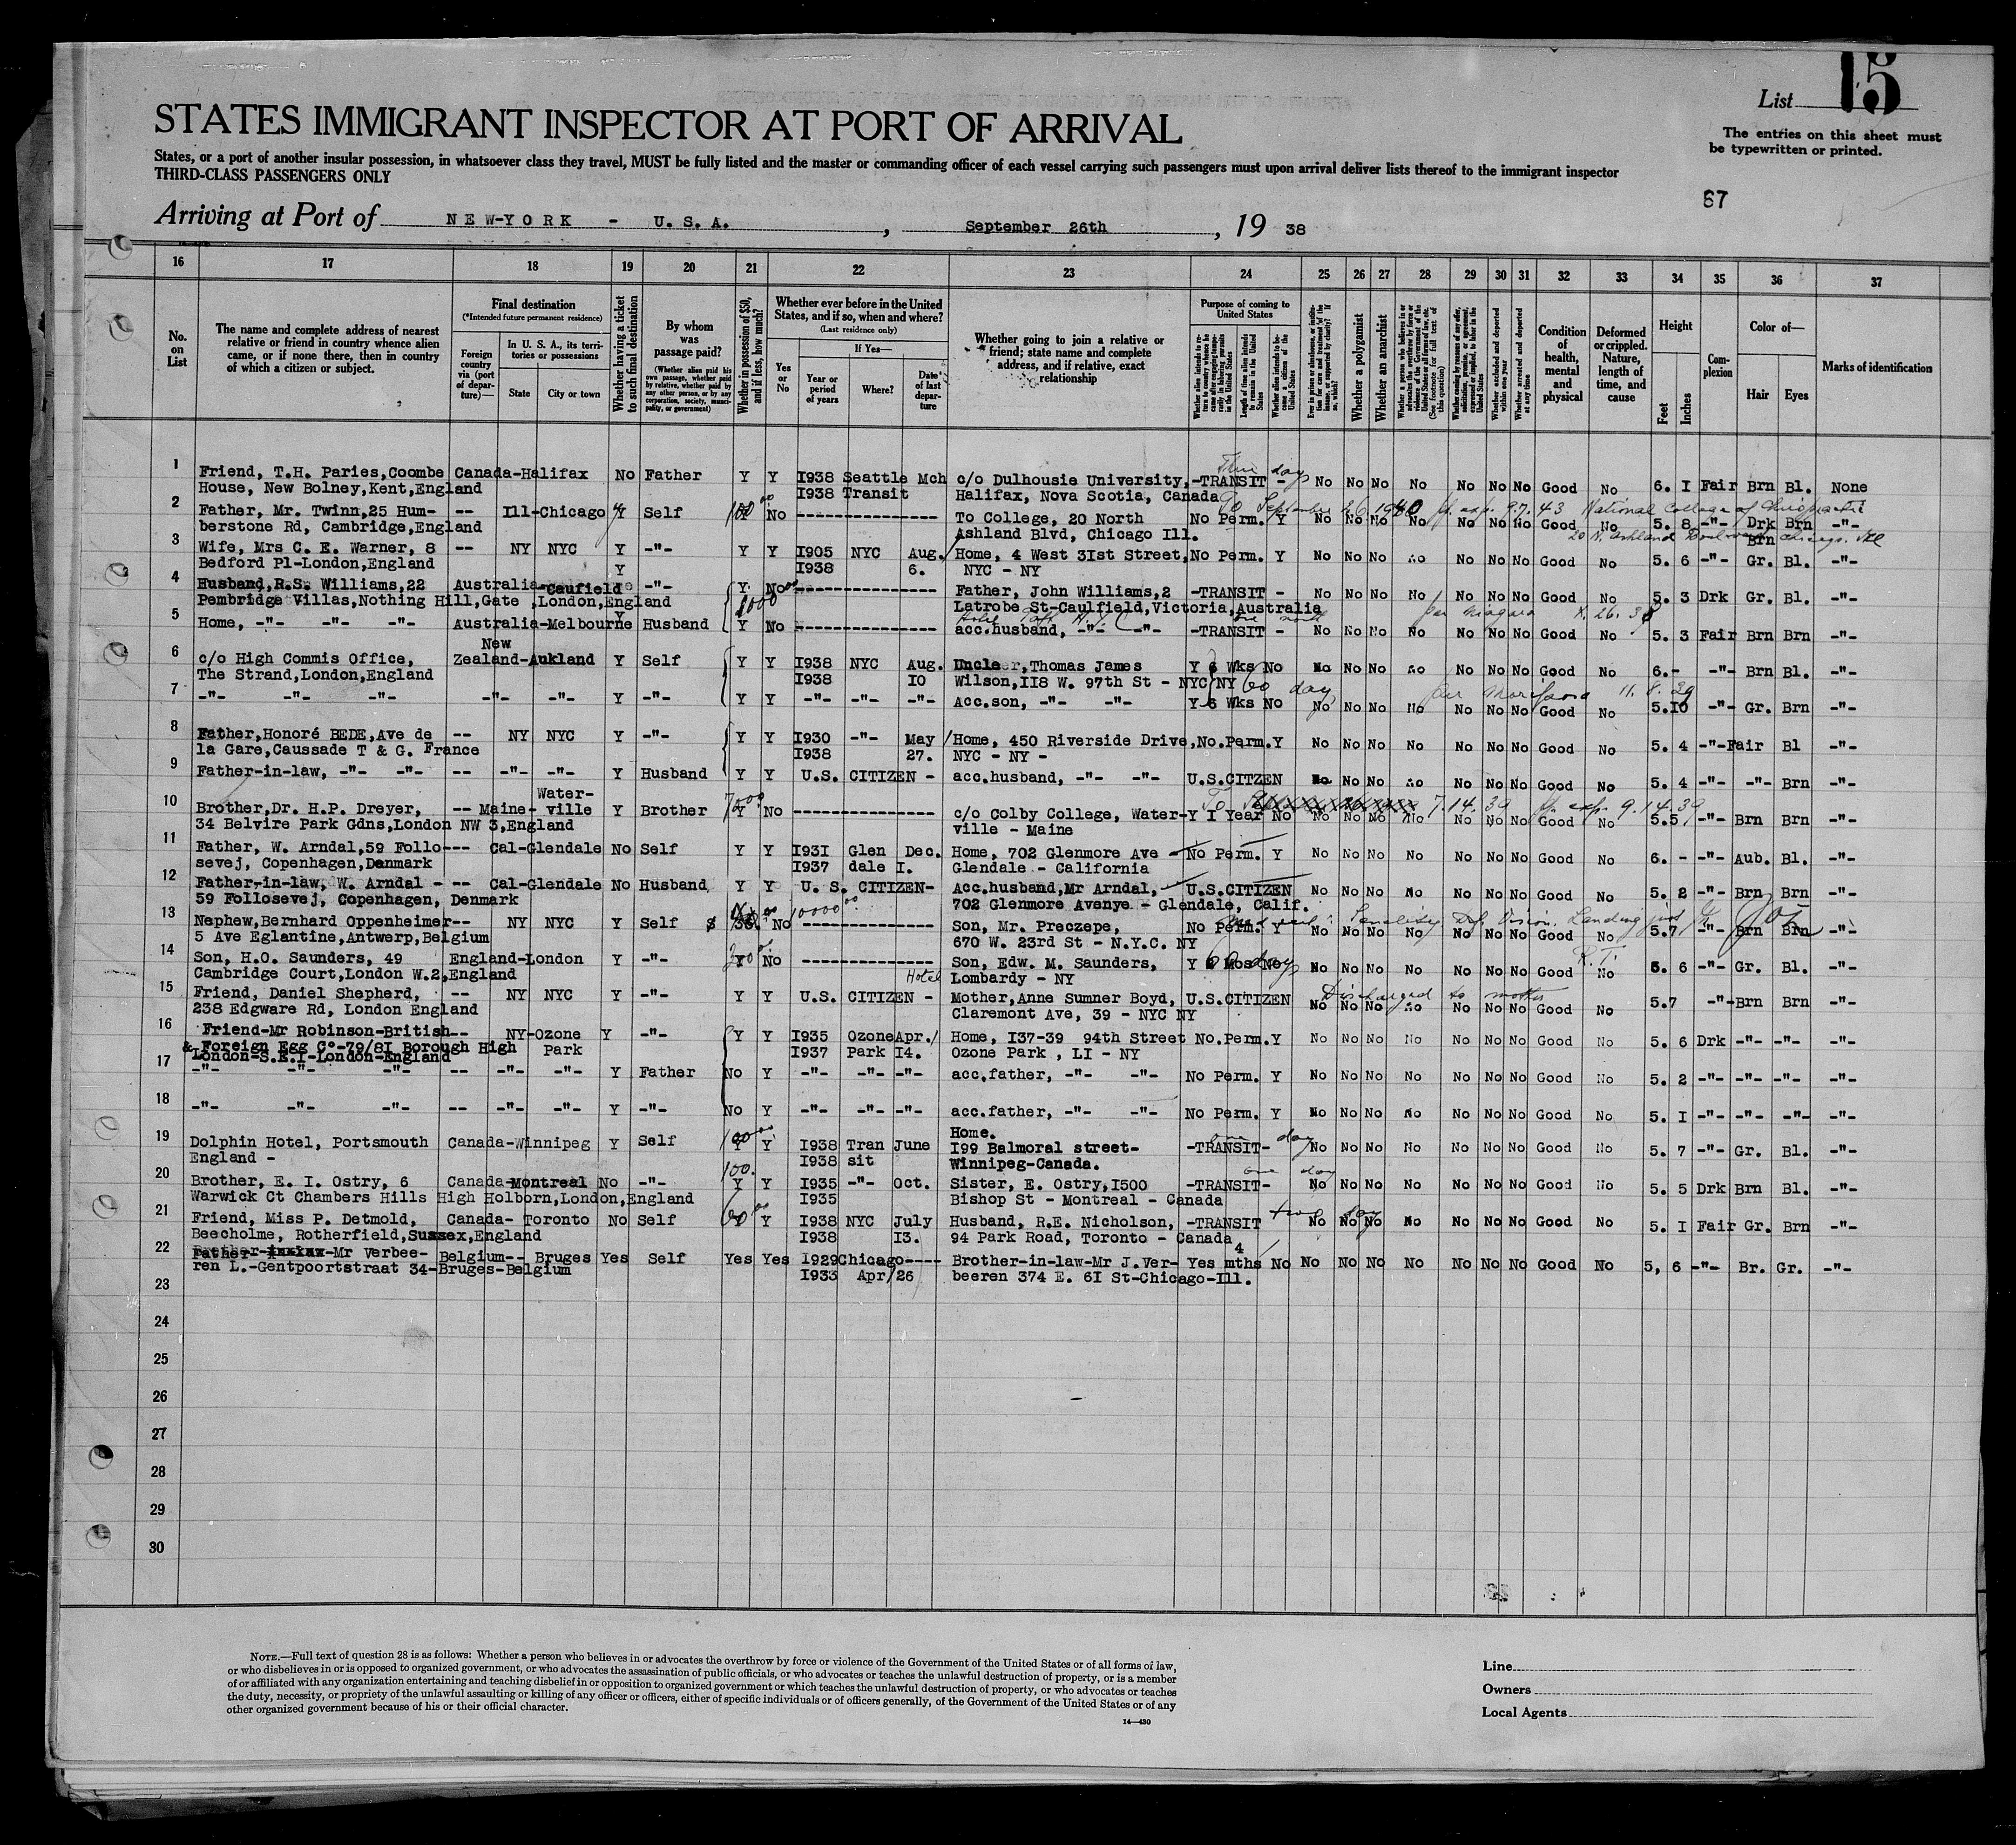 List 15
STATES IMMIGRANT INSPECTOR AT PORT OF ARRIVAL
The entries on this sheet must
be typewritten or printed.
States, or a port of another insular possession, in whatsoever class they travel, MUST be fully listed and the master or commanding officer of each vessel carrying such passengers must upon arrival deliver lists thereof to the immigrant inspector
THIRD-CLASS PASSENGERS ONLY
67
Arriving at Port of NEW-YORK - U.S.A. , September 26th , 19 38
16 17 18 19 20 21 22 23 24 25 26 27 28 29 30 31 32 33 34 35 36 37
No. on List
The name and complete address of nearest relative or friend in country whence alien came, or if none there, then in country of which a citizen or subject.
Final destination
(*Intended future permanent residence)
Foreign country via (port of departure)—
In U. S. A., its territories or possessions
State
City or town
Whether having a ticket to such final destination
By whom was passage paid?
(Whether alien paid his own passage, whether paid by relative, whether paid by any other person, or by any corporation, society, municipality, or government)
Whether in possession of $50, and if less, how much?
Whether ever before in the United States, and if so, when and where?
(Last residence only)
Yes or No
If Yes—
Year or period of years
Where?
Date of last departure
Whether going to join a relative or friend; state name and complete address, and if relative, exact relationship
Purpose of coming to United States
Whether a polygamist
Whether an anarchist
Whether excluded and deported within one year
Whether arrested and deported at any time
Condition of health, mental and physical
Deformed or crippled. Nature, length of time, and cause
Height
Feet
Inches
Complexion
Color of—
Hair
Eyes
Marks of identification
1 Friend, T.H. Paries,Coombe Canada-Halifax No Father Y Y I938 Seattle Mch c/o Dulhousie University, -TRANSIT - No No No No No No No Good No 6. I Fair Brn Bl. None
House, New Bolney,Kent,England I938 Transit Halifax, Nova Scotia, Canada
2 Father, Mr. Twinn,25 Hum- -- Ill-Chicago Y Self 100 No ---------------- To College, 20 North No Perm. Y No No No No No No No Good No 5. 8 -"- Drk Brn -"-
September 26 1940 9.7.43 National College of Chiropractic
berstone Rd, Cambridge,England Ashland Blvd, Chicago Ill. 20 N. Ashland Boulevard Chicago. Ill
3 Wife, Mrs C. E. Warner, 8 -- NY NYC Y -"- Y Y I905 NYC Aug. Home, 4 West 3Ist Street, No Perm. Y No No No No No No No Good No 5. 6 -"- Gr. Bl. -"-
Bedford Pl-London,England Y I938 6. NYC - NY
4 Husband,R.S. Williams,22 Australia-Caufield -"- Y No ---------------- Father, John Williams,2 -TRANSIT - No No No No No No No Good No 5. 3 Drk Gr. Bl. -"-
Pembridge Villas,Nothing Hill,Gate ,London,England 1000 Latrobe St-Caulfield,Victoria,Australia
5 Home, -"- -"- -"- Australia-Melbourne Husband Y No ---------------- acc.husband, -"- -"- -TRANSIT - No No No No No No No Good No 5. 3 Fair Brn Brn -"-
New
6 c/o High Commis Office, Zealand-Aukland Y Self Y Y I938 NYC Aug. Uncle,Thomas James Y 6 Wks No No No No No No No No Good No 6.- -"- Brn Bl. -"-
The Strand,London,England I938 IO Wilson,II8 W. 97th St - NYC NY 60 days
7 -"- -"- -"- -"- -"- Y -"- Y Y -"- -"- -"- Acc.son, -"- -"- Y 6 Wks No No No No No No No No Good No 5.IO -"- Gr. Brn -"-
8 Father,Honoré BEDE,Ave de -- NY NYC Y -"- Y Y I930 -"- May Home, 450 Riverside Drive, No.Perm.Y No No No No No No No Good No 5. 4 -"-Fair Bl -"-
la Gare,Caussade T & G. France I938 27. NYC - NY -
9 Father-in-law, -"- -"- -- -"- -"- Y Husband Y Y U.S. CITIZEN - acc.husband, -"- -"- U.S.CITZEN No No No No No No No Good No 5. 4 -"- -"- Brn -"-
Water-
10 Brother,Dr. H.P. Dreyer, -- Maine- ville Y Brother Y No ---------------- c/o Colby College, Water- Y I Year No No No No No No No No Good No 5.5 -"- Brn Brn -"-
7.14.39 9.14.39
34 Belvire Park Gdns,London NW 3,England ville - Maine
11 Father, W. Arndal,59 Follo--- Cal-Glendale No Self Y Y I93I Glen Dec. Home, 702 Glenmore Ave - No Perm. Y No No No No No No No Good No 6. - -"- Aub. Bl. -"-
sevej, Copenhagen,Denmark I937 dale I. Glendale - California
12 Father-in-law, W. Arndal - -- Cal-Glendale No Husband Y Y U. S. CITIZEN- Acc.husband,Mr Arndal, U.S.CITIZEN No No No No No No No Good No 5. 2 -"- Brn Brn -"-
59 Follosevej, Copenhagen, Denmark 702 Glenmore Avenye - Glendale, Calif.
13 Nephew,Bernhard Oppenheimer-- NY NYC Y Self $ No ---------------- Son, Mr. Preczepe, No Perm. Y No No No No No No No Good No 5.7 -"- Brn Brn -"-
5 Ave Eglantine,Antwerp,Belgium 670 W. 23rd St - N.Y.C. NY
14 Son, H.O. Saunders, 49 England-London Y -"- Y No ---------------- Son, Edw. M. Saunders, Y Mos No No No No No No No No Good No 5. 6 -"- Gr. Bl. -"-
Cambridge Court,London W.2,England Hotel Lombardy - NY
15 Friend, Daniel Shepherd, -- NY NYC Y -"- Y Y U.S. CITIZEN - Mother,Anne Sumner Boyd, U.S.CITIZEN No No No No No No No Good No 5.7 -"- Brn Brn -"-
Discharged to mother
238 Edgware Rd, London England Claremont Ave, 39 - NYC NY
16 Friend-Mr Robinson-British-- NY-Ozone Y -"- Y Y I935 Ozone Apr./ Home, I37-39 94th Street No.Perm.Y No No No No No No No Good No 5. 6 Drk -"- -"- -"-
& Foreign Egg C°-79/8I Borough High Park I937 Park I4. Ozone Park , LI - NY
London-S.E.I-London-England
17 -"- -"- -"- -- -"- -"- Y Father No Y -"- -"- -"- acc.father, -"- -"- No Perm. Y No No No No No No No Good No 5. 2 -"- -"- -"- -"-
18 -"- -"- -"- -- -"- -"- Y -"- No Y -"- -"- -"- acc.father, -"- -"- No Perm. Y No No No No No No No Good No 5. I -"- -"- -"- -"-
Home.
19 Dolphin Hotel, Portsmouth Canada-Winnipeg Y Self Y Y I938 Tran June I99 Balmoral street- -TRANSIT- No No No No No No No Good No 5. 7 -"- Gr. Bl. -"-
England - I938 sit Winnipeg-Canada.
100. one day
20 Brother, E. I. Ostry, 6 Canada-Montreal No -"- Y Y I935 -"- Oct. Sister, E. Ostry,I500 -TRANSIT- No No No No No No No Good No 5. 5 Drk Brn Bl. -"-
Warwick Ct Chambers Hills High Holborn,London,England I935 Bishop St - Montreal - Canada
21 Friend, Miss P. Detmold, Canada- Toronto No Self 60 Y I938 NYC July Husband, R.E. Nicholson, -TRANSIT No No No No No No No Good No 5. I Fair Gr. Brn -"-
Beecholme, Rotherfield,Sussex,England I938 I3. 94 Park Road, Toronto - Canada
4
22 Father- -Mr Verbee- Belgium-- Bruges Yes Self Yes Yes I929 Chicago---- Brother-in-law-Mr J.Ver- Yes mths No No No No No No No No Good No 5, 6 -"- Br. Gr. -"-
ren L.-Gentpoortstraat 34-Bruges-Belgium I933 Apr/26 beeren 374 E. 6I St-Chicago-Ill.
23
24
25
26
27
28
29
30
NOTE.—Full text of question 28 is as follows: Whether a person who believes in or advocates the overthrow by force or violence of the Government of the United States or of all forms of law,
or who disbelieves in or is opposed to organized government, or who advocates the assassination of public officials, or who advocates or teaches the unlawful destruction of property, or is a member
of or affiliated with any organization entertaining and teaching disbelief in or opposition to organized government or which teaches the unlawful destruction of property, or who advocates or teaches
the duty, necessity, or propriety of the unlawful assaulting or killing of any officer or officers, either of specific individuals or of officers generally, of the Government of the United States or of any
other organized government because of his or their official character.
14—430
Line
Owners
Local Agents